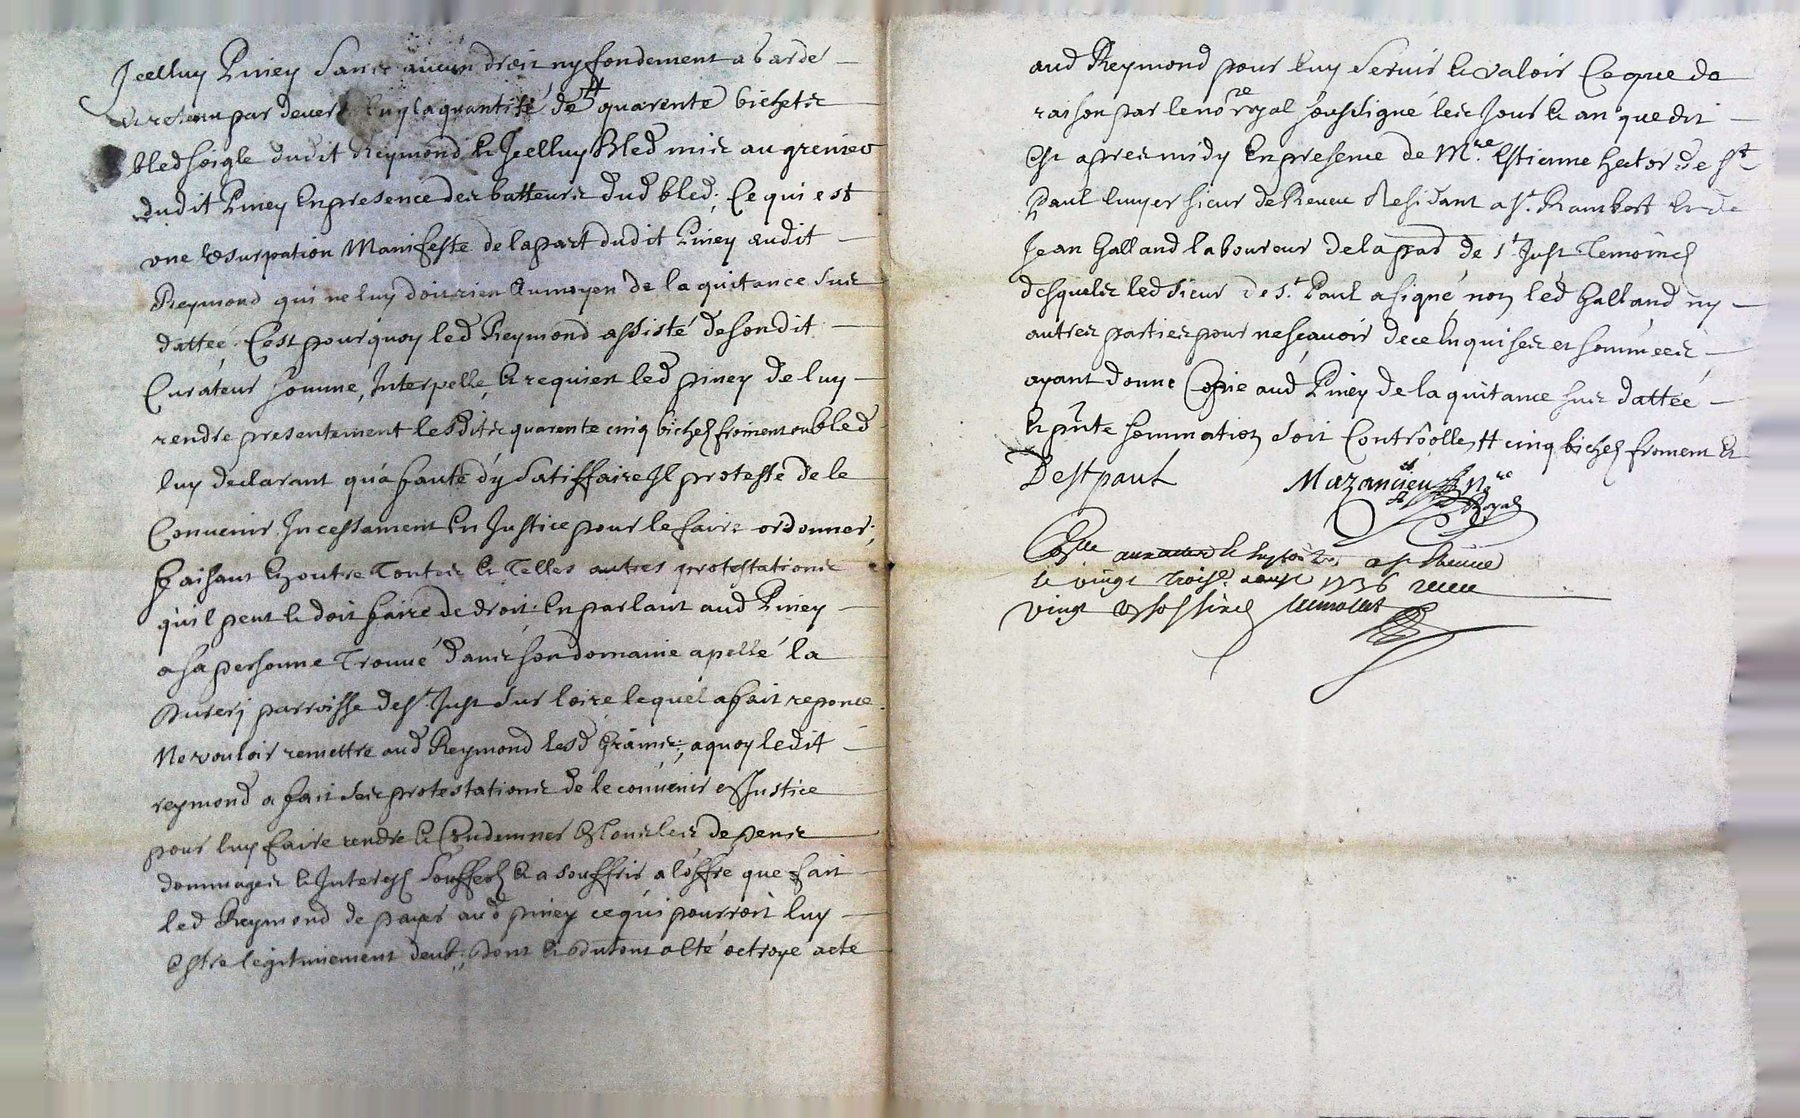 Jcelluy Piney Sans aucun droit ny fondement a Gardé
et retenu par devers luy la quantité de # quarente bichets
bled seigle dudit Reymond & Jcelluy Bled mis au grenier
dudit Piney En presence des batteurs dud bled; Ce qui est
une Usurpation Manifeste de la part dudit Piney audit
Reymond qui ne luy doit rien Aumoyen de la quitance sus
dattée. C'est pourquoy led Reymond assisté de son dit
Curateur somme, Interpelle, & requiert led piney de luy
rendre presentement lesdits quarente cinq bichez froment ou bled
luy declarant qu'a faute d'y Satiffaire Jl proteste de le
Convenir Jncessament En Justice pour le faire ordonner;
faisant En outre Toutes & Telles autres protestations
qu'il peut & doit faire de droit: En parlant aud Piney
a sa personne Trouvé dans son domaine apellé la
parroisse de st Just sur loire lequel a fait reponce
Ne vouloir remettre aud Reymond lesd Grains; a quoy ledit
reymond a fait ses protestations de le convenir en Justice
pour luy faire rendre & Condemner En tous les depens
dommages & Interests Soufferts & a souffrir a l'offre que fait
led Reymond de payer aud piney ce qui pourroit luy
Estre legitimement deub; dont & du tout a Eté octroyé acte
aud Reymond pour luy servir & valoir Ce que de
raison par le no.re royal soussigné les Jour & an que dit
Est apres midy En presence de M.re Estienne hector de st
Paul Ecuyer sieur de Residant a st. Rambert & de
Jean Galland laboureur de la par de st Just Temoins
desquels led Sieur de st. Paul a signé, non led Galland ny
autres parties pour ne sçavoir de ce Enquises et somméés
ayant donné Copie aud Piney de la quitance sus dattéé
En p̃nte sommation soit Controôllé # cinq bichez froment &
Destpaul
No.re
Royal
le vingt trois. 1736 receu
vingt sols